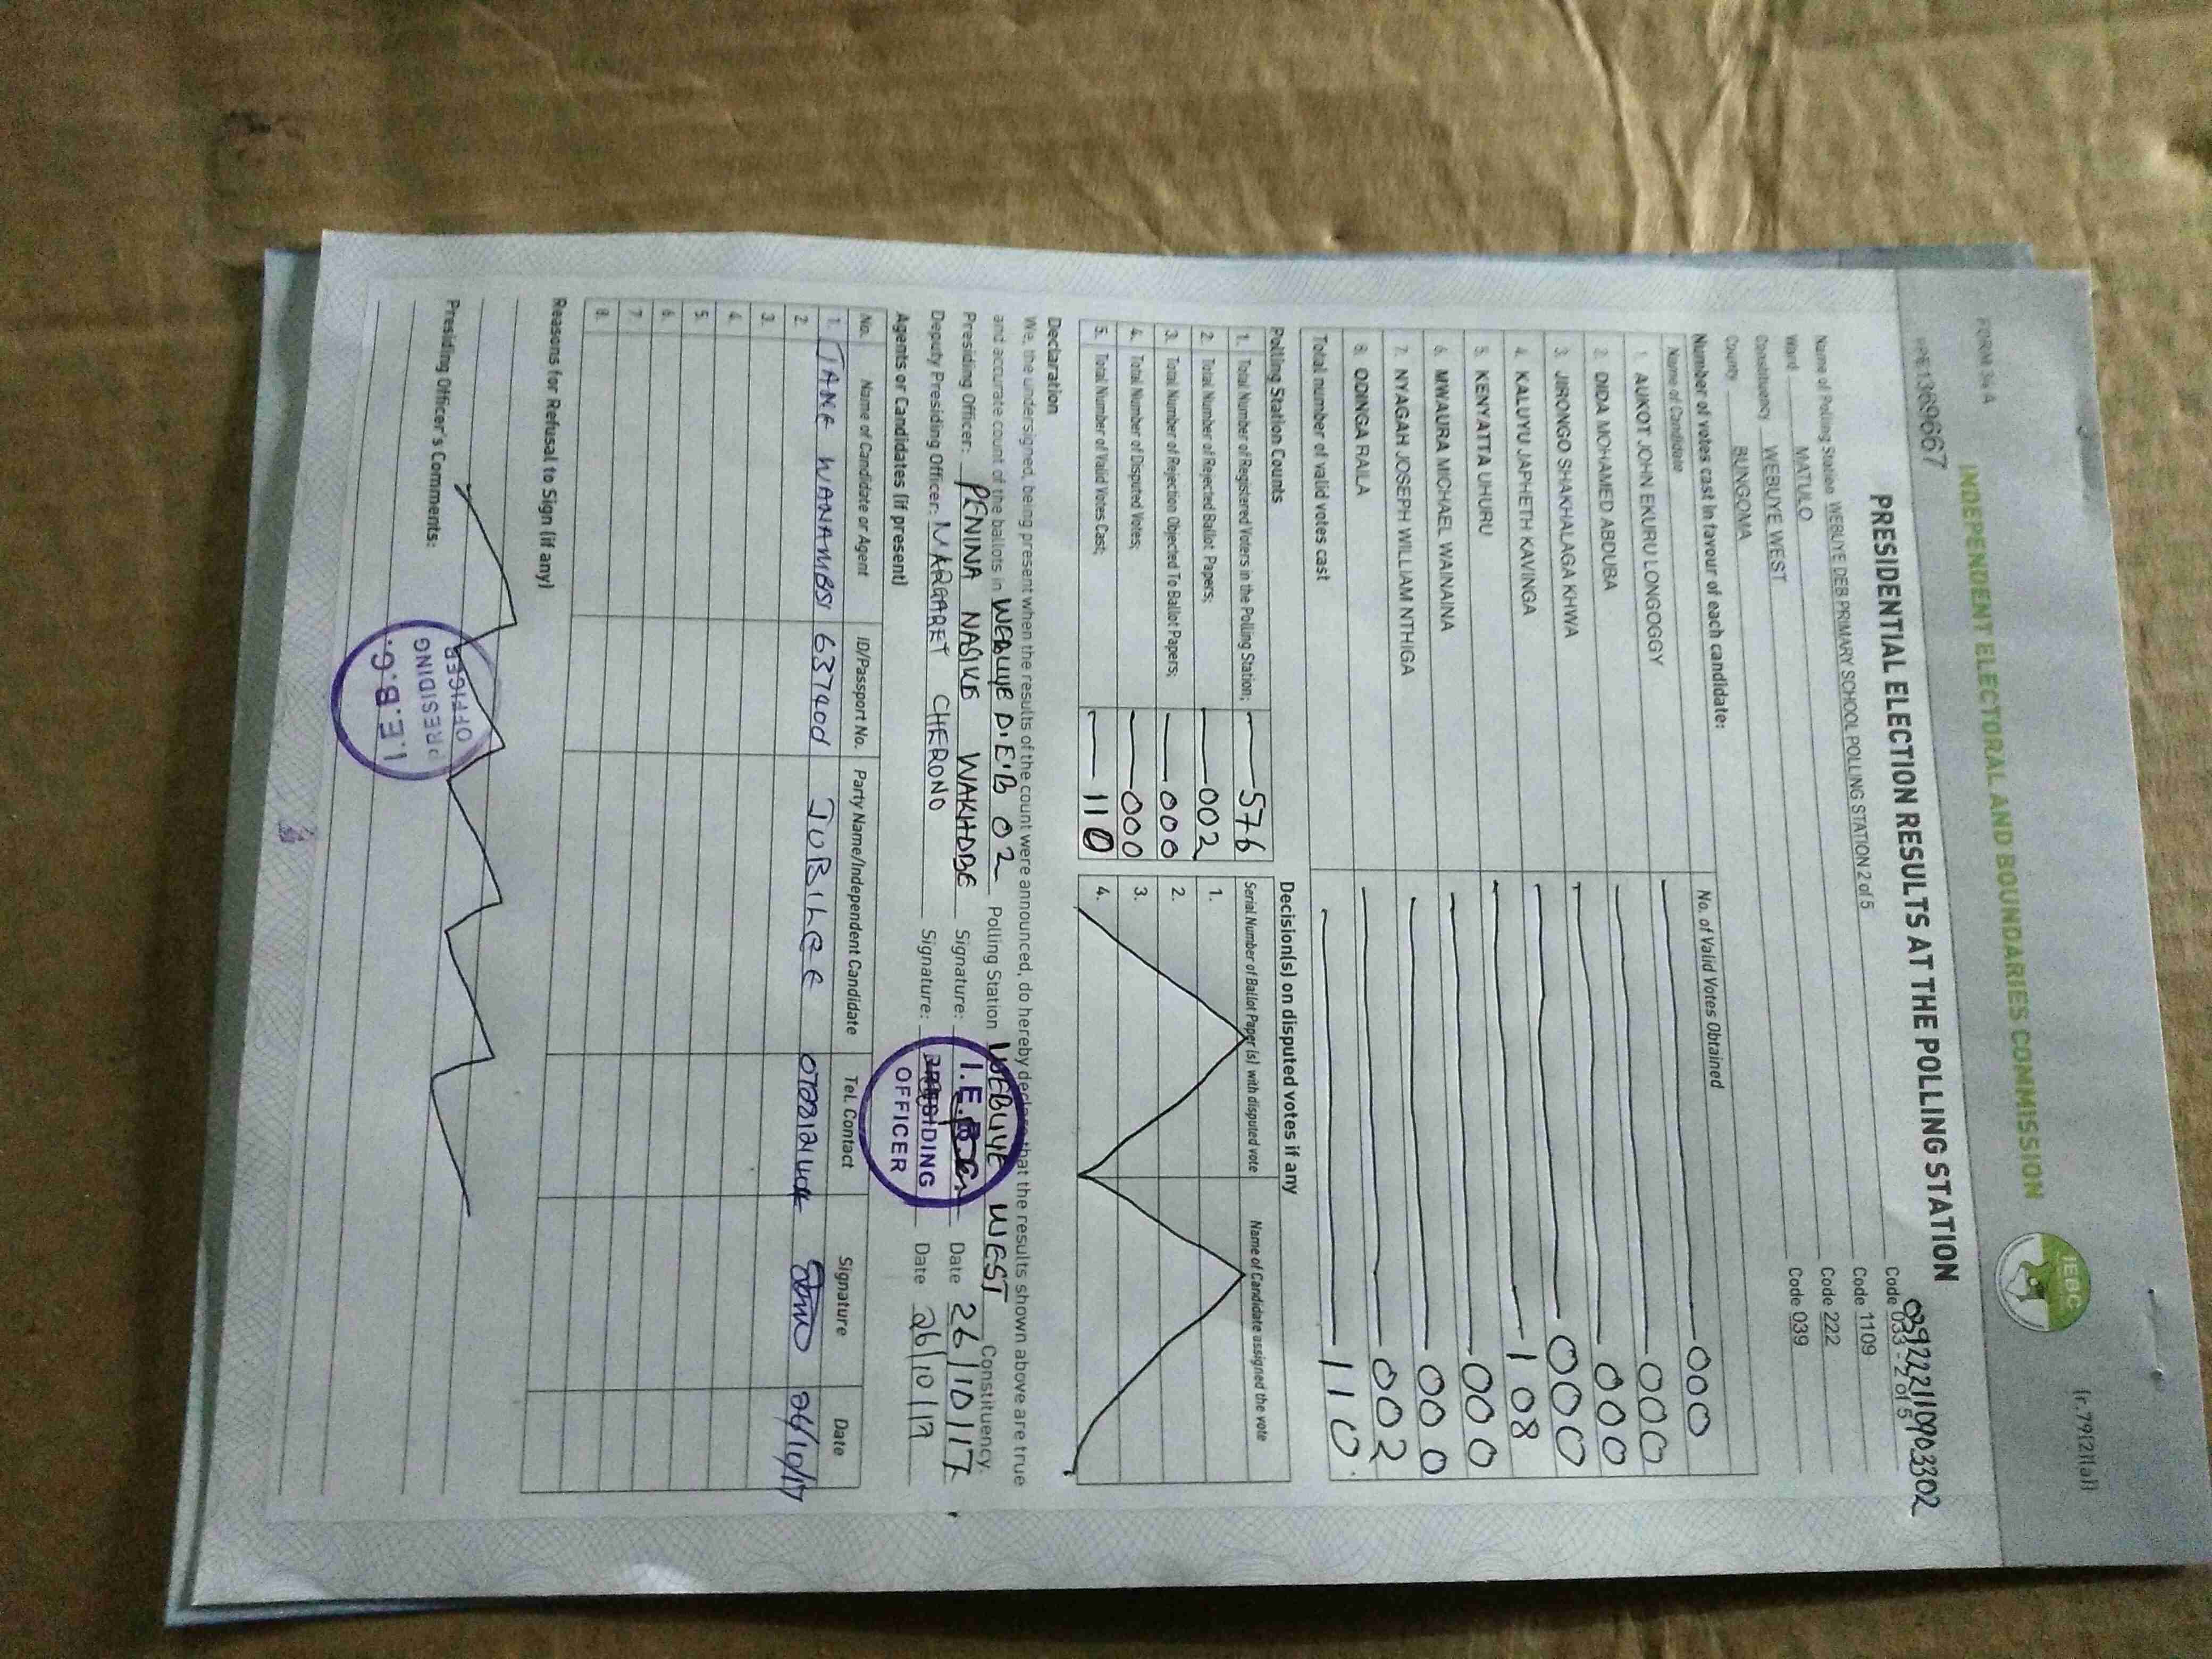 FORM 34A
(r.79(2)(a))
INDEPENDENT ELECTORAL AND BOUNDARIES COMMISSION
IEBC
1369667
PRESIDENTIAL ELECTION RESULTS AT THE POLLING STATION
039222110903302
Name of Polling Station WEBUYE DEB PRIMARY SCHOOL POLLING STATION 2 of 5 Code 033 - 2 of 5
Ward MATULO Code 1109
Constituency WEBUYE WEST Code 222
County BUNGOMA Code 039
Number of votes cast in favour of each candidate:
Name of Candidate No. of Valid Votes Obtained
1. AUKOT JOHN EKURU LONGOGGY 000
2. DIDA MOHAMED ABDUBA 000
3. JIRONGO SHAKHALAGA KHWA 000
4. KALUYU JAPHETH KAVINGA 000
5. KENYATTA UHURU 108
6. MWAURA MICHAEL WAINAINA 000
7. NYAGAH JOSEPH WILLIAM NTHIGA 000
8. ODINGA RAILA 002
Total number of valid votes cast 110
Polling Station Counts
1. Total Number of Registered Voters in the Polling Station; 576
2. Total Number of Rejected Ballot Papers; 002
3. Total Number of Rejection Objected To Ballot Papers; 000
4. Total Number of Disputed Votes; 000
5. Total Number of Valid Votes Cast; 110
Decision(s) on disputed votes if any
Serial Number of Ballot Paper (s) with disputed vote Name of Candidate assigned the vote
1.
2.
3.
4.
Declaration
We, the undersigned, being present when the results of the count were announced, do hereby declare that the results shown above are true
and accurate count of the ballots in WEBUYE D.E.B 02 Polling Station WEBUYE WEST Constituency.
Presiding Officer: PENINA NASIKE WAKHOBE Signature: Date 26/10/17
Deputy Presiding Officer: MARGARET CHERONO Signature: Date 26/10/17
I.E.B.C.
PRESIDING
OFFICER
Agents or Candidates (if present)
No. Name of Candidate or Agent ID/Passport No. Party Name/Independent Candidate Tel. Contact Signature Date
1. JANE WANAMBSI JUBILEE 26/10/17
2.
3.
4.
5.
6.
7.
8.
Reasons for Refusal to Sign (if any)
Presiding Officer's Comments:
I.E.B.C.
PRESIDING
OFFICER